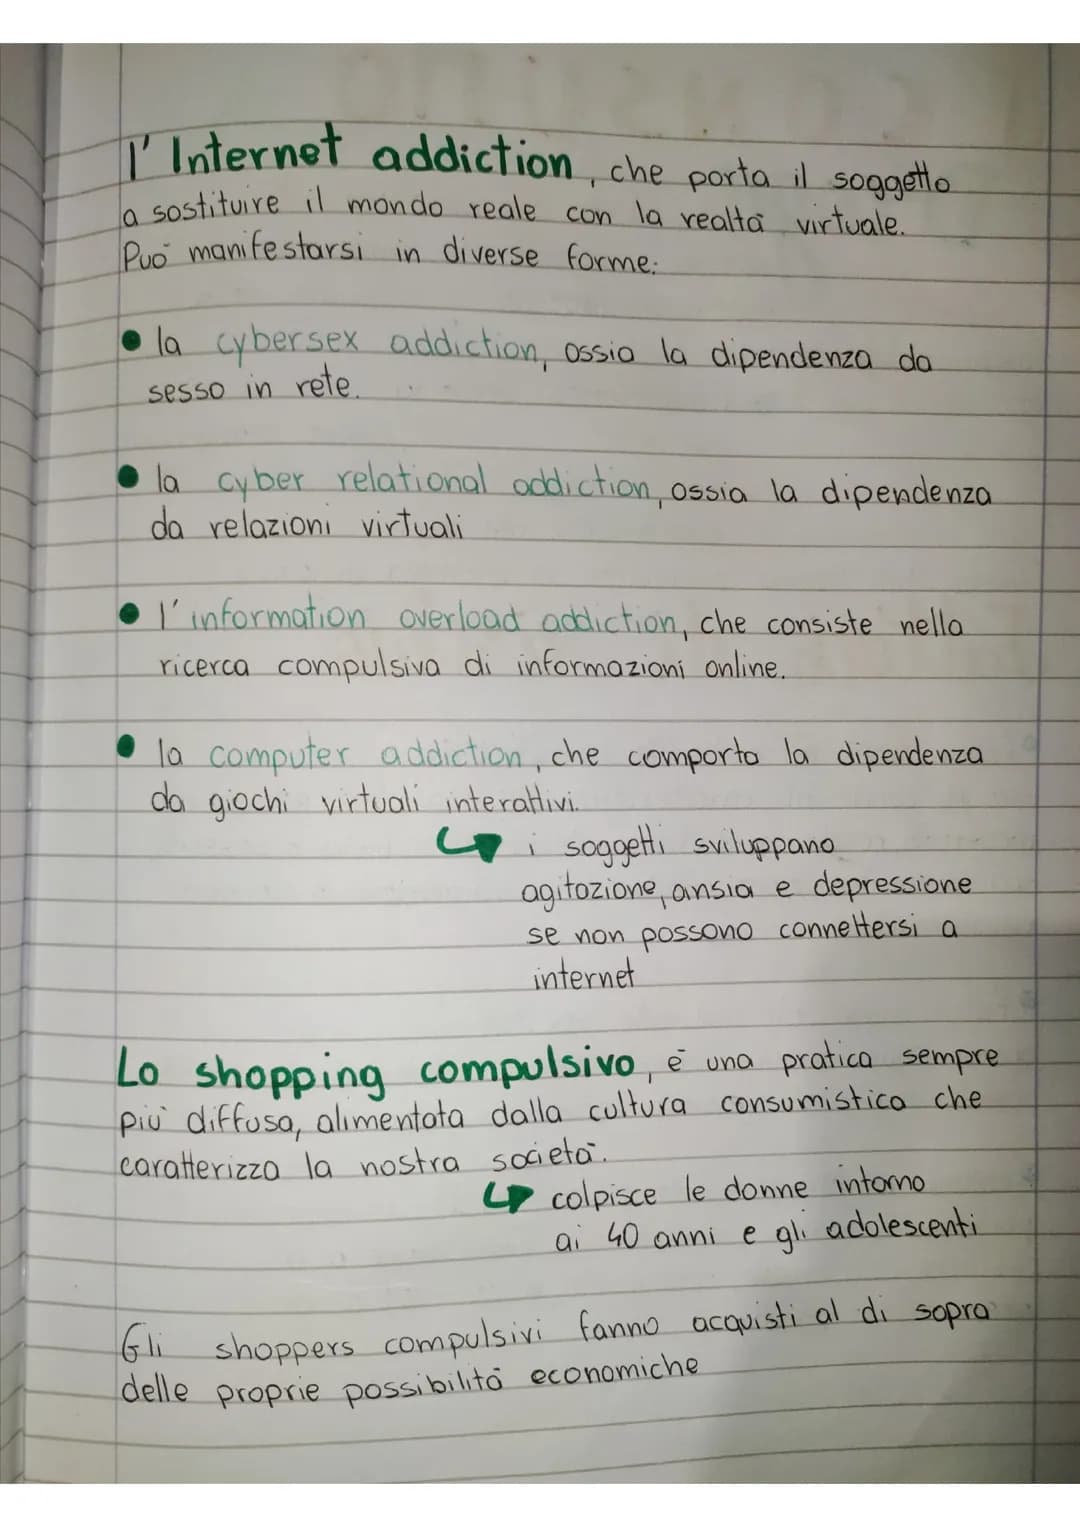 l'Internet addiction, che porta il soggetto
a sostituire il mondo reale con la realtà virtuale.
Può manifestarsi in diverse forme:
● la cybersex addiction, ossia la dipendenza da
sesso in rete.
● la cyber relational addiction, ossia la dipendenza
da relazioni virtuali
● l'information overload addiction, che consiste nella
ricerca compulsiva di informazioni online.
● la computer addiction, che comporta la dipendenza
da giochi virtuali interattivi.
↳ i soggetti sviluppano
agitazione, ansia e depressione
se non possono connettersi a
internet
Lo shopping compulsivo, è una pratica sempre
più diffusa, alimentata dalla cultura consumistica che
caratterizza la nostra società.
↳ colpisce le donne intorno
ai 40 anni e gli adolescenti
Gli shoppers compulsivi fanno acquisti al di sopra
delle proprie possibilità economiche